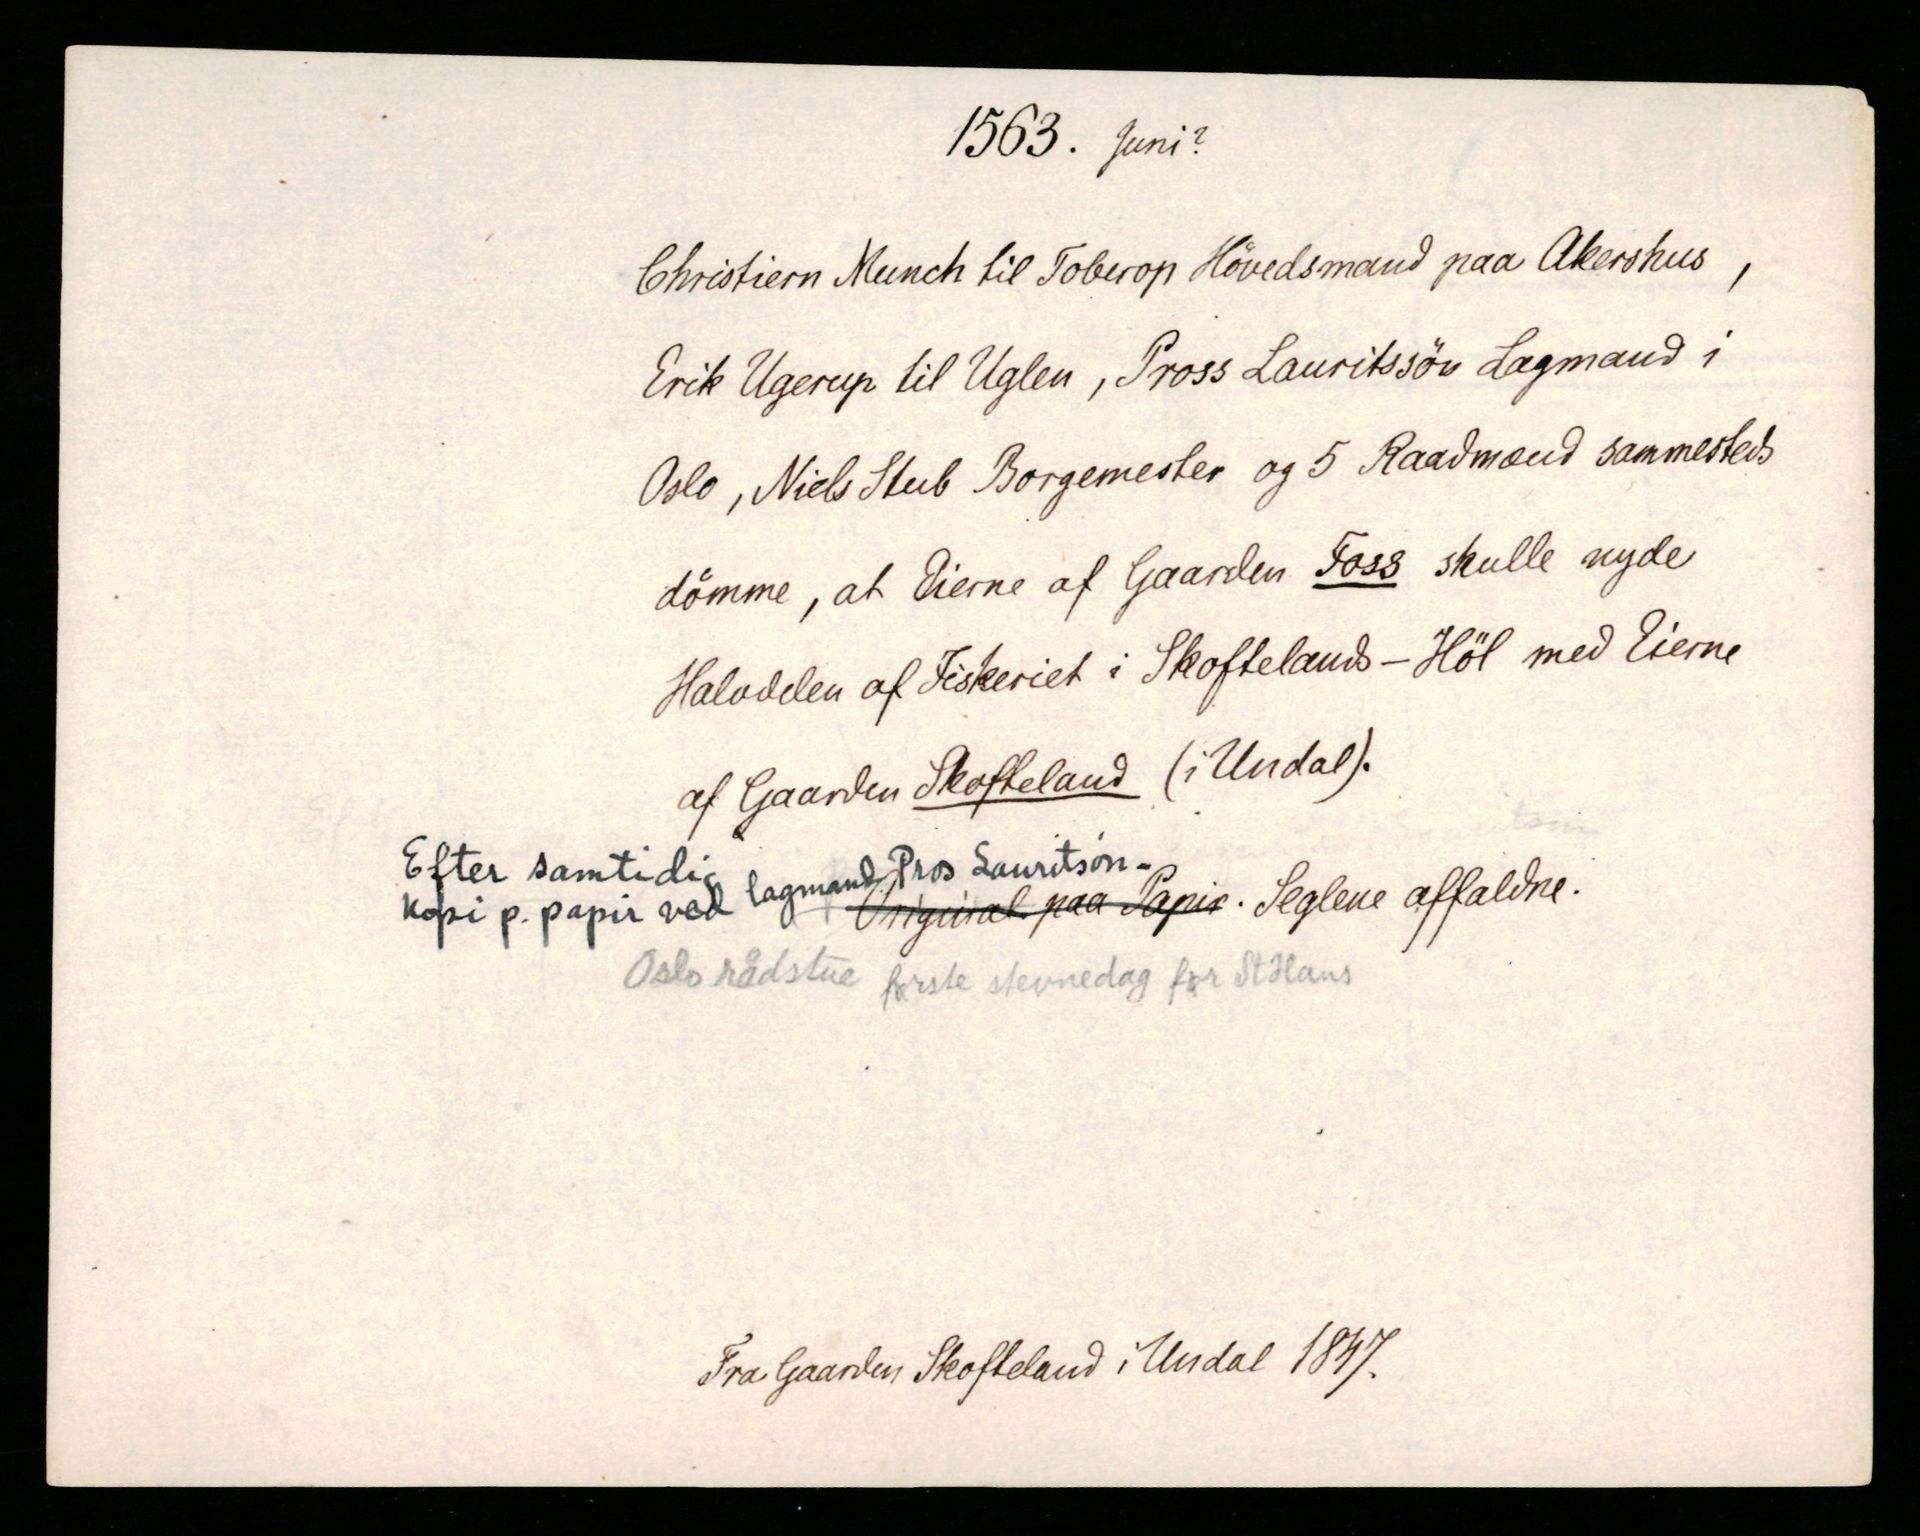 1563. Juni?
Christiern Munch til Toberop Hövedsmand paa Akershus,
Erik Ugerup til Uglen, Pross Lauritssön Lagmand i
Oslo, Niels Stub Borgemester og 5 Raadmænd sammesteds
dömme, at Eierne af Gaarden Foss skulle nyde
Halvdelen af Fiskeriet i Skoftelands-Höl med Eierne
af Gaarden Skofteland (i Undal).
Efter samtidig
kopi p. papir ved lagmand Pros Lauritsøn-
Original paa Papir. Seglene affaldne.
Oslo rådstue første stevnedag før St Hans
Fra Gaarden Skofteland i Undal 1847.